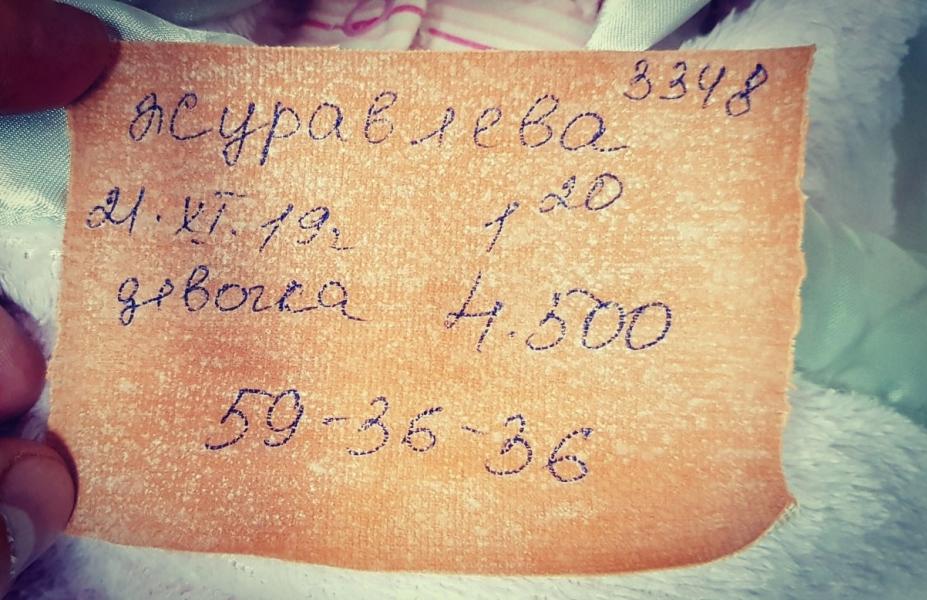 Журавлева 3348
21. XI. 19г 1 20
девочка 4.500
59-36-36